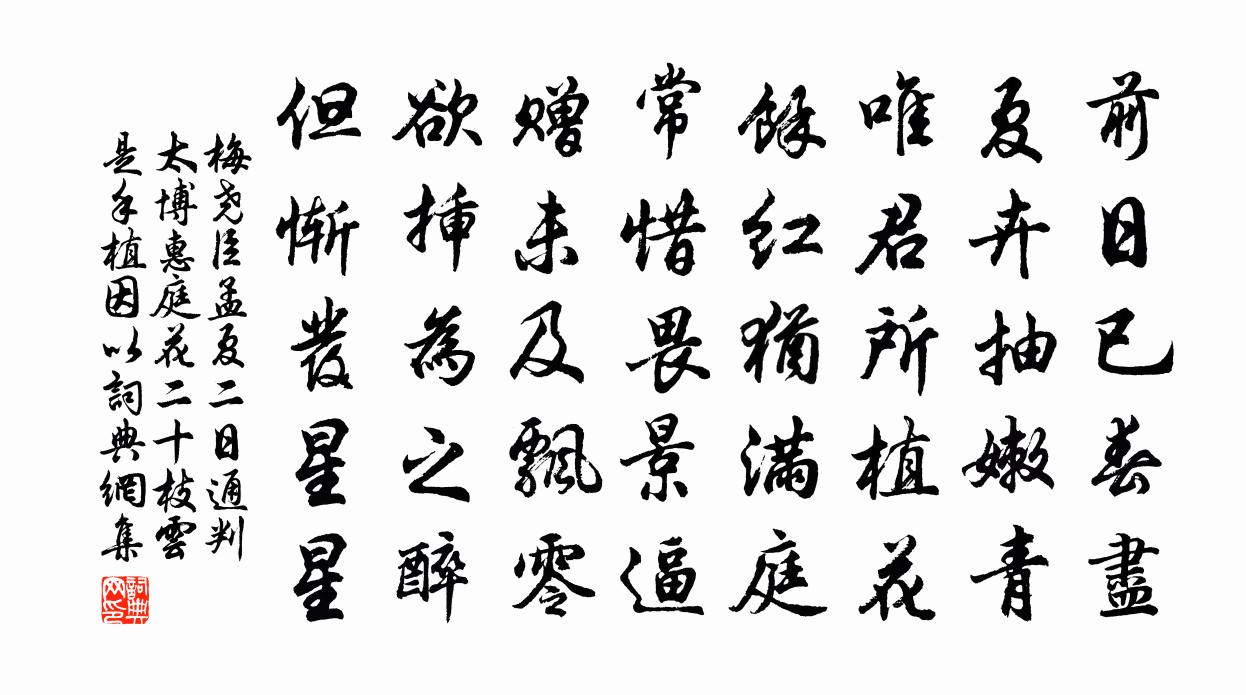 前日已春盡
夏卉抽嫩青
唯君所植花
餘紅猶滿庭
常惜畏景逼
贈未及飄零
欲揷為之醉
但慚發星星
梅尧臣孟夏二日通判
太博惠庭花二十枝雲
是手植因以詞典網集
詞典
网印